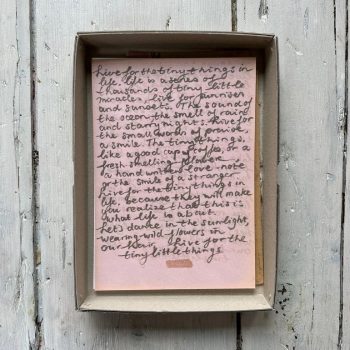 Live for the tiny things in
life. life is a series of
thousands of tiny little
miracles, live for sunrises
and sunsets. The sound of
the ocean, the smell of rain
and starry nights. Live for
the small words of praise,
a smile. The tiny things,
like a good cup of coffee, or a
fresh smelling flower.
a hand written love note
or the smile of a stranger
Live for the tiny things in
life. because they will make
you realize that this is
what life is about.
Let's dance in the sunlight,
wearing wild flowers in
our hair. Live for the
tiny little things